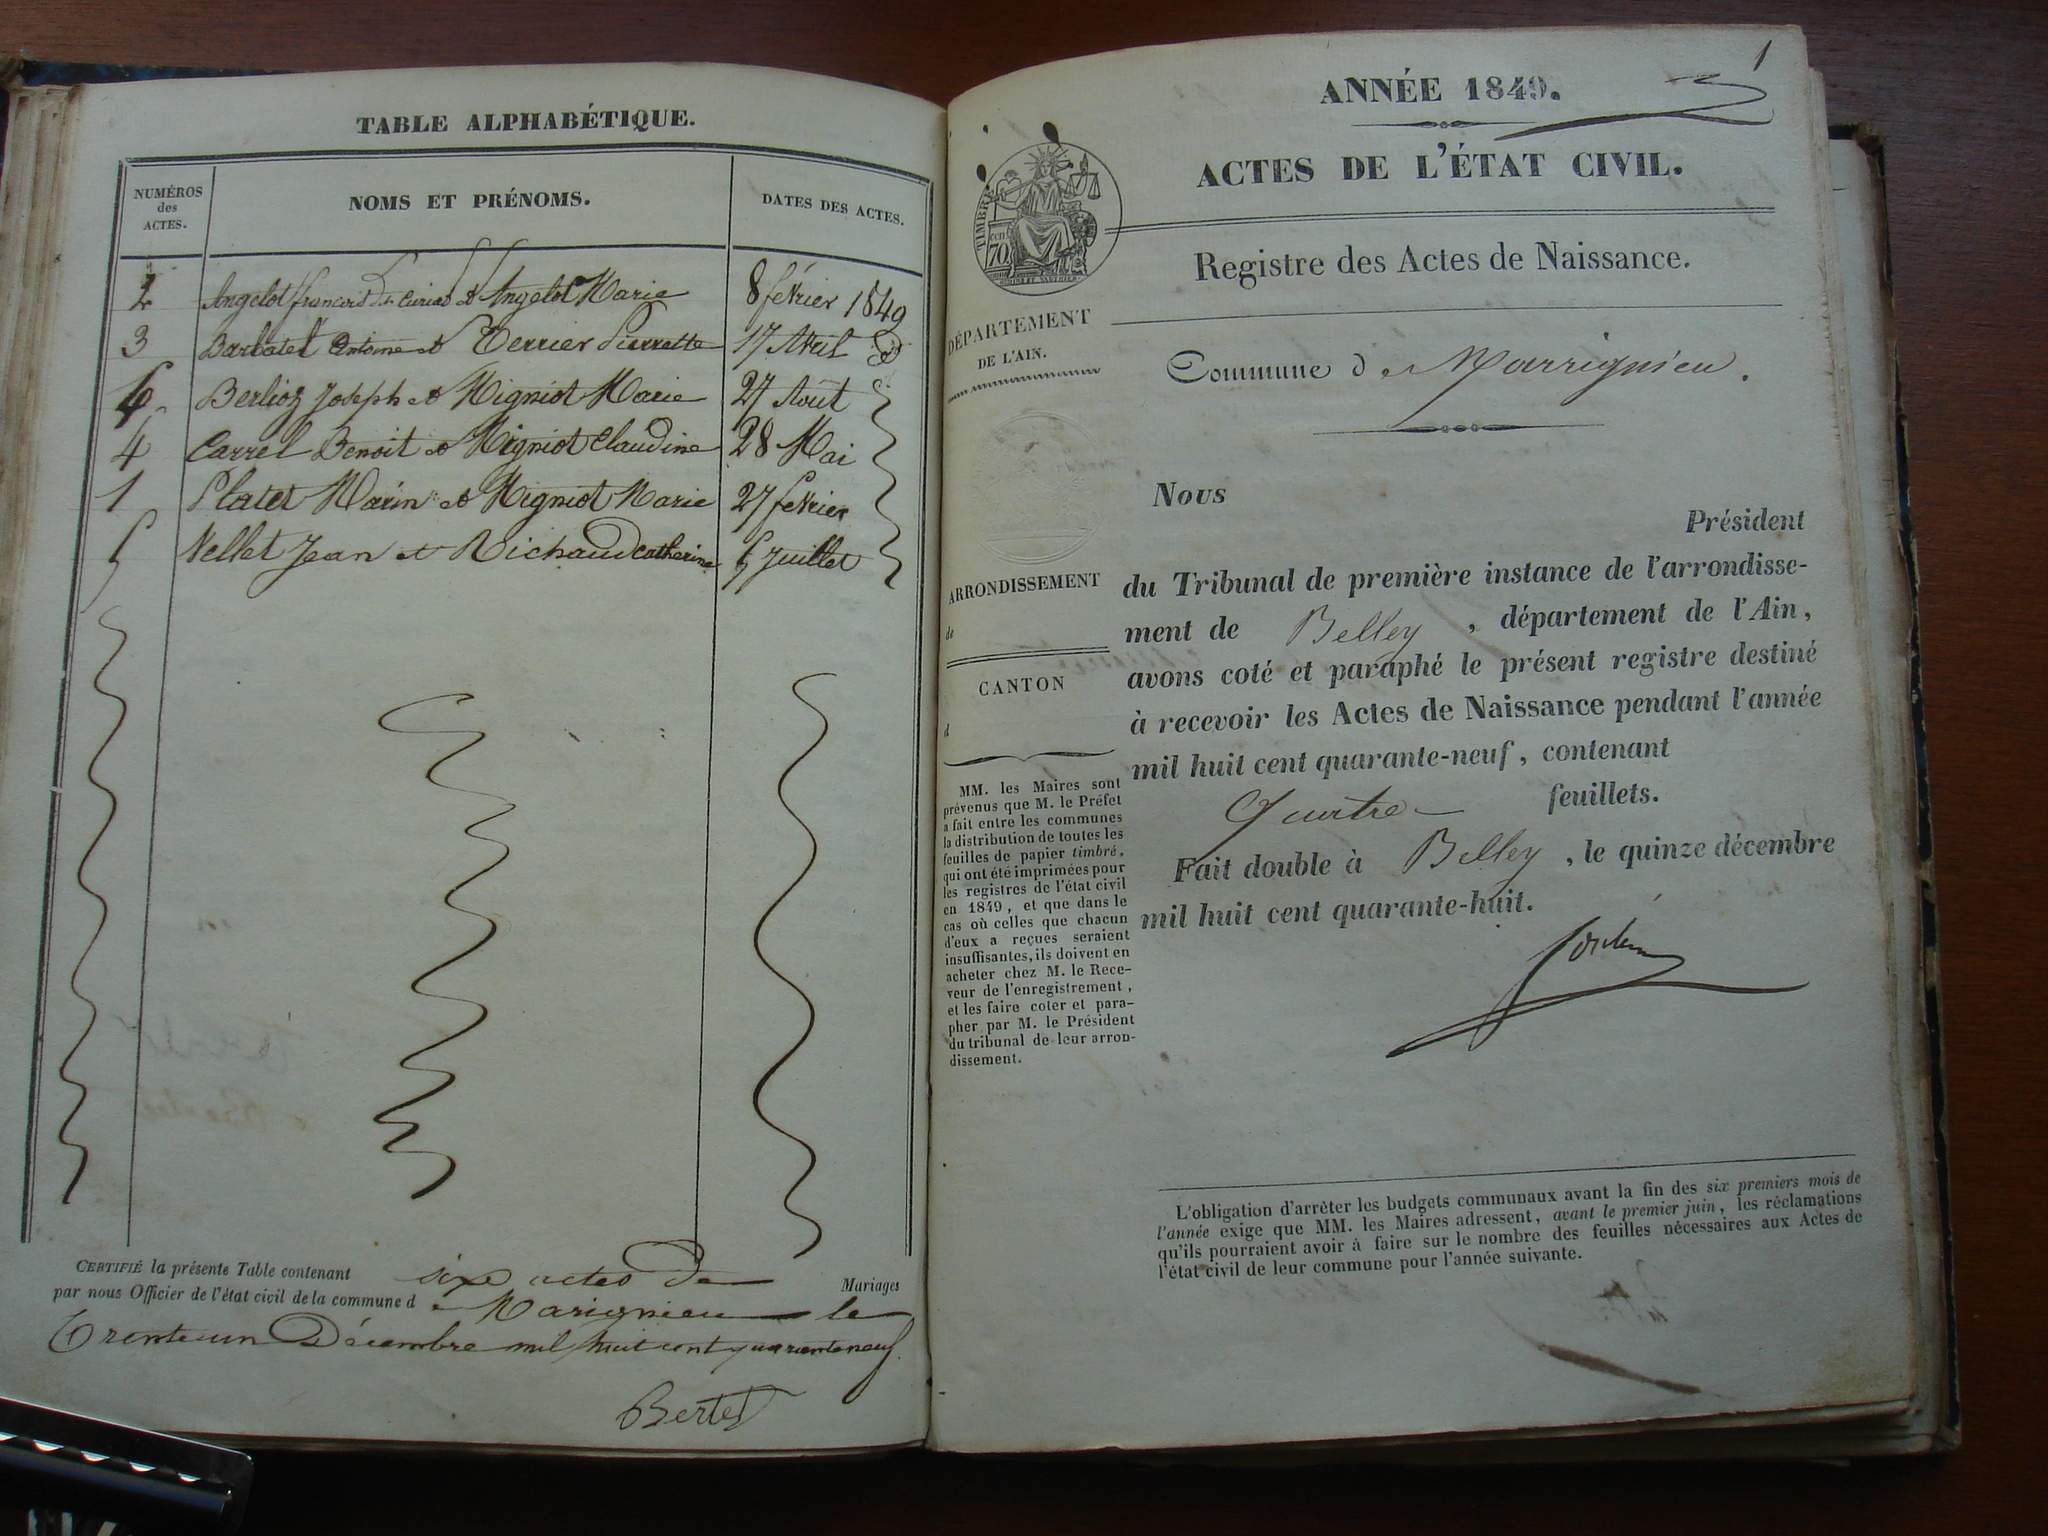 TABLE ALPHABÉTIQUE.
NUMÉROS
des
ACTES.
NOMS ET PRÉNOMS.
DATES DES ACTES.
2 Angelot françois dit Curiad et Angelot Marie 8 février 1849
3 Barbatet Antoine et Terrier Pierrette 17 Avril d
6 Berlioz Joseph et Migniot Marie 27 Août
4 Carrel Benoit et Migniot Claudine 28 Mai
1 Platet Marin et Migniot Marie 27 février
5 Vellet Jean et Richaud catherine 5 Juillet
CERTIFIÉ la présente Table contenant sixe actes de Mariages
par nous Officier de l'état civil de la commune d e Marignieu le
Trenteun Décembre mil huit cent quaranteneuf.
Bertet
1
ANNÉE 1849.
ACTES DE L'ÉTAT CIVIL.
TIMBRE
cent
70
Registre des Actes de Naissance.
DÉPARTEMENT
DE L'AIN.
Commune de Marrignieu.
Nous
Président
du Tribunal de première instance de l'arrondisse-
ment de Belley, département de l'Ain,
avons coté et paraphé le présent registre destiné
à recevoir les Actes de Naissance pendant l'année
mil huit cent quarante-neuf, contenant
Quatre feuillets.
Fait double à Belley, le quinze décembre
mil huit cent quarante-huit.
ARRONDISSEMENT
de
CANTON
d
MM. les Maires sont
prévenus que M. le Préfet
a fait entre les communes
la distribution de toutes les
feuilles de papier timbré,
qui ont été imprimées pour
les registres de l'état civil
en 1849, et que dans le
cas où celles que chacun
d'eux a reçues seraient
insuffisantes, ils doivent en
acheter chez M. le Rece-
veur de l'enregistrement,
et les faire coter et para-
pher par M. le Président
du tribunal de leur arron-
dissement.
L'obligation d'arrêter les budgets communaux avant la fin des six premiers mois de
l'année exige que MM. les Maires adressent, avant le premier juin, les réclamations
qu'ils pourraient avoir à faire sur le nombre des feuilles nécessaires aux Actes de
l'état civil de leur commune pour l'année suivante.